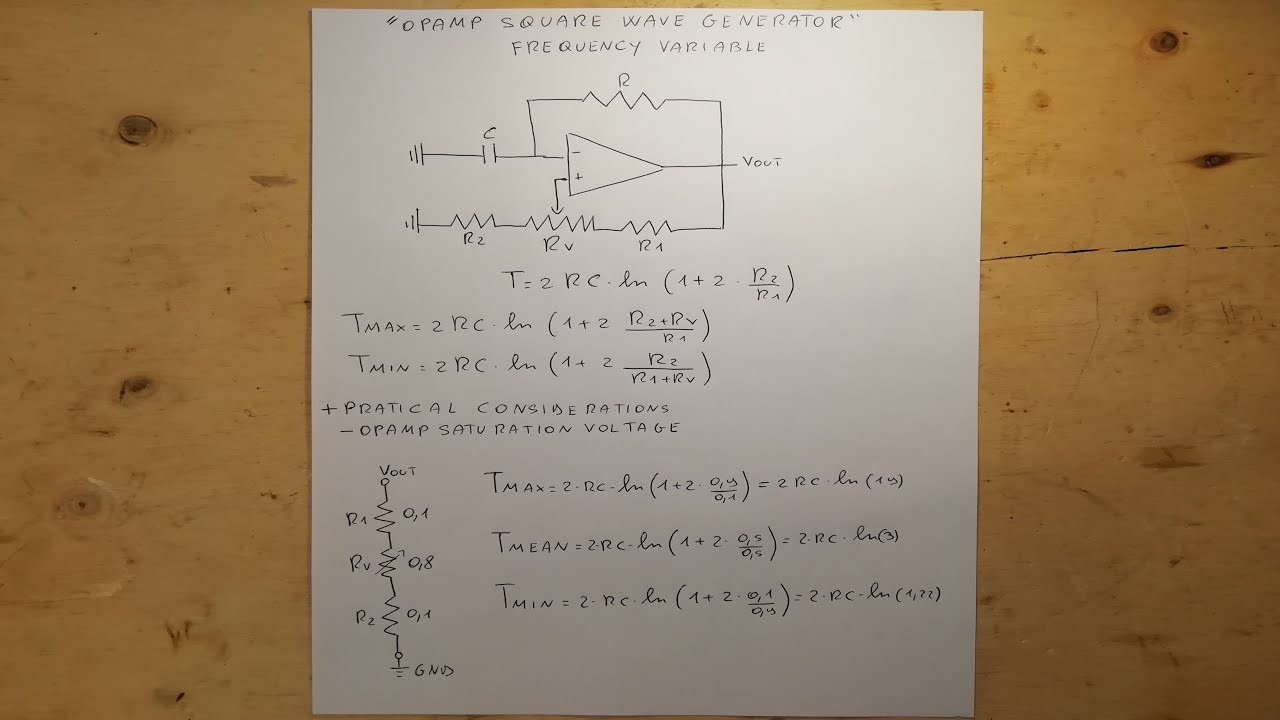 "OPAMP SQUARE WAVE GENERATOR"
FREQUENCY VARIABLE
R
C
-
+
VOUT
R2
RV
R1
T = 2 RC · ln (1 + 2 · R2/R1)
TMAX = 2 RC · ln (1 + 2 R2+RV/R1)
TMIN = 2 RC · ln (1 + 2 R2/R1+RV)
+ PRATICAL CONSIDERATIONS
- OPAMP SATURATION VOLTAGE
VOUT
R1 0,1
RV 0,8
R2 0,1
GND
TMAX = 2·RC·ln (1+2· 0,9/0,1) = 2 RC · ln (19)
TMEAN = 2·RC·ln (1+2· 0,5/0,5) = 2·RC · ln(3)
TMIN = 2·RC·ln (1+2· 0,1/0,9) = 2·RC·ln (1,22)